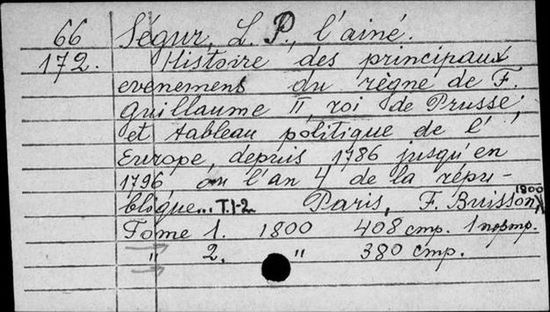 66 Ségur, L. P., l'ainé.
172. Histoire des principaux
evenemens du règne de F.
Guillaume II roi de Prusse,
et tableau politique de l'
Europe, depuis 1786 jusqu'en
1796 ou l'an 4 de la répu-
blique... T.1-2. Paris, F. Buisson, 1800
Tome 1. 1800 408 стр. 1 портр.
" 2. " 380 стр.